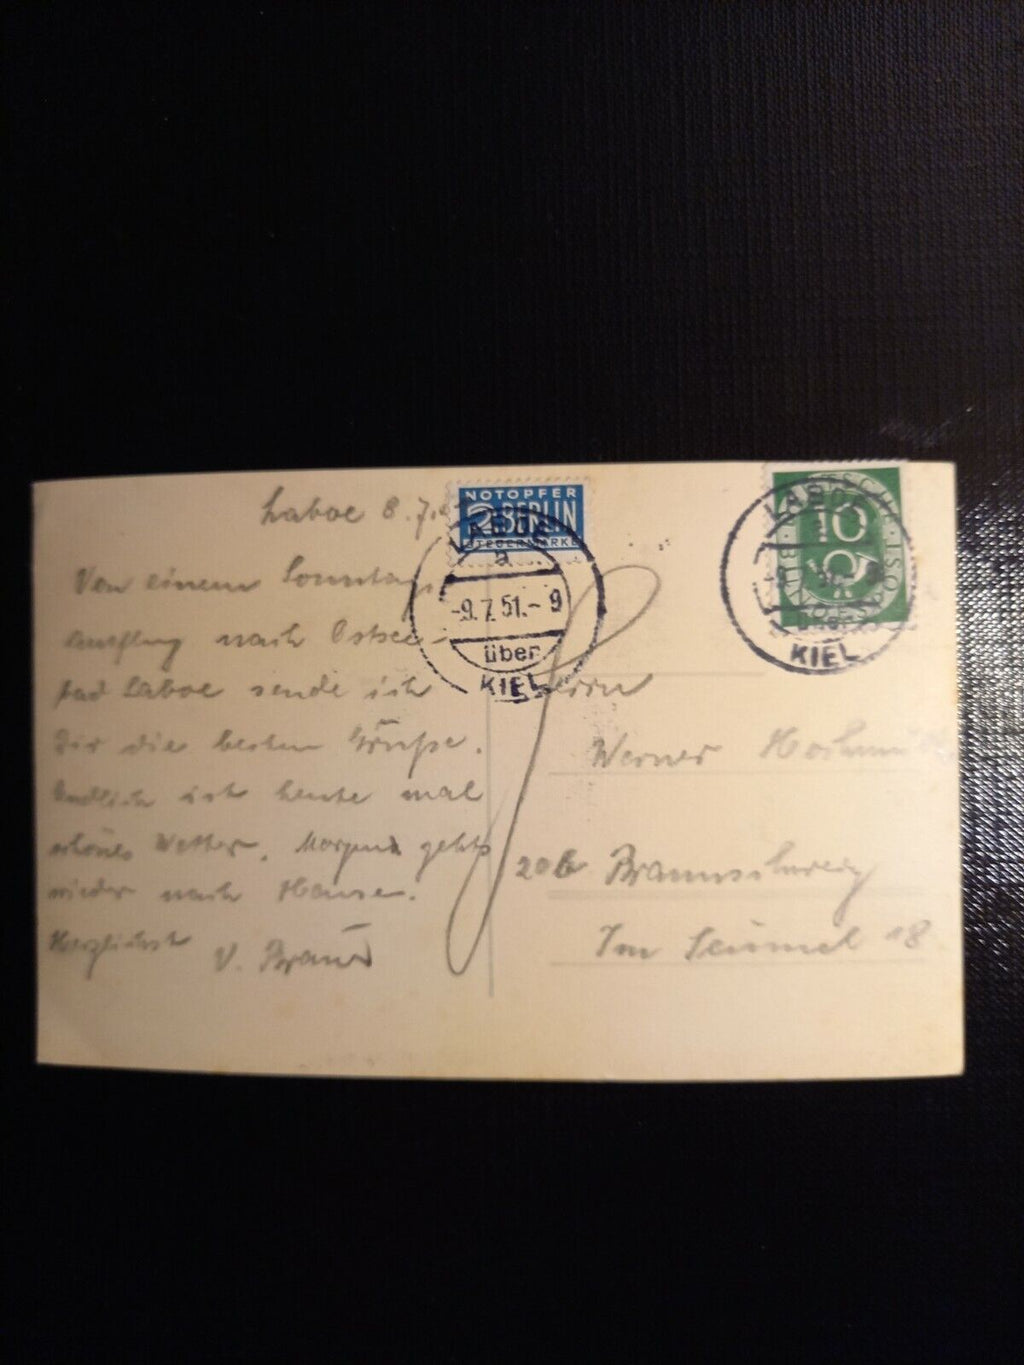 Laboe 8.7.
Von einem Sonntags-
ausflug nach Ostsee-
bad Laboe sende ich
Dir die besten Grüße.
Endlich ist heute mal
schönes Wetter. Morgen gehts
wieder nach Hause.
Herzlichst
V.
NOTOPFER
2 BERLIN
STEUERMARKE
LABOE
a
-9.7.51.-9
über
KIEL
10
LABOE
über
KIEL
Herrn
Werner
20b Braunschweig
Im 18